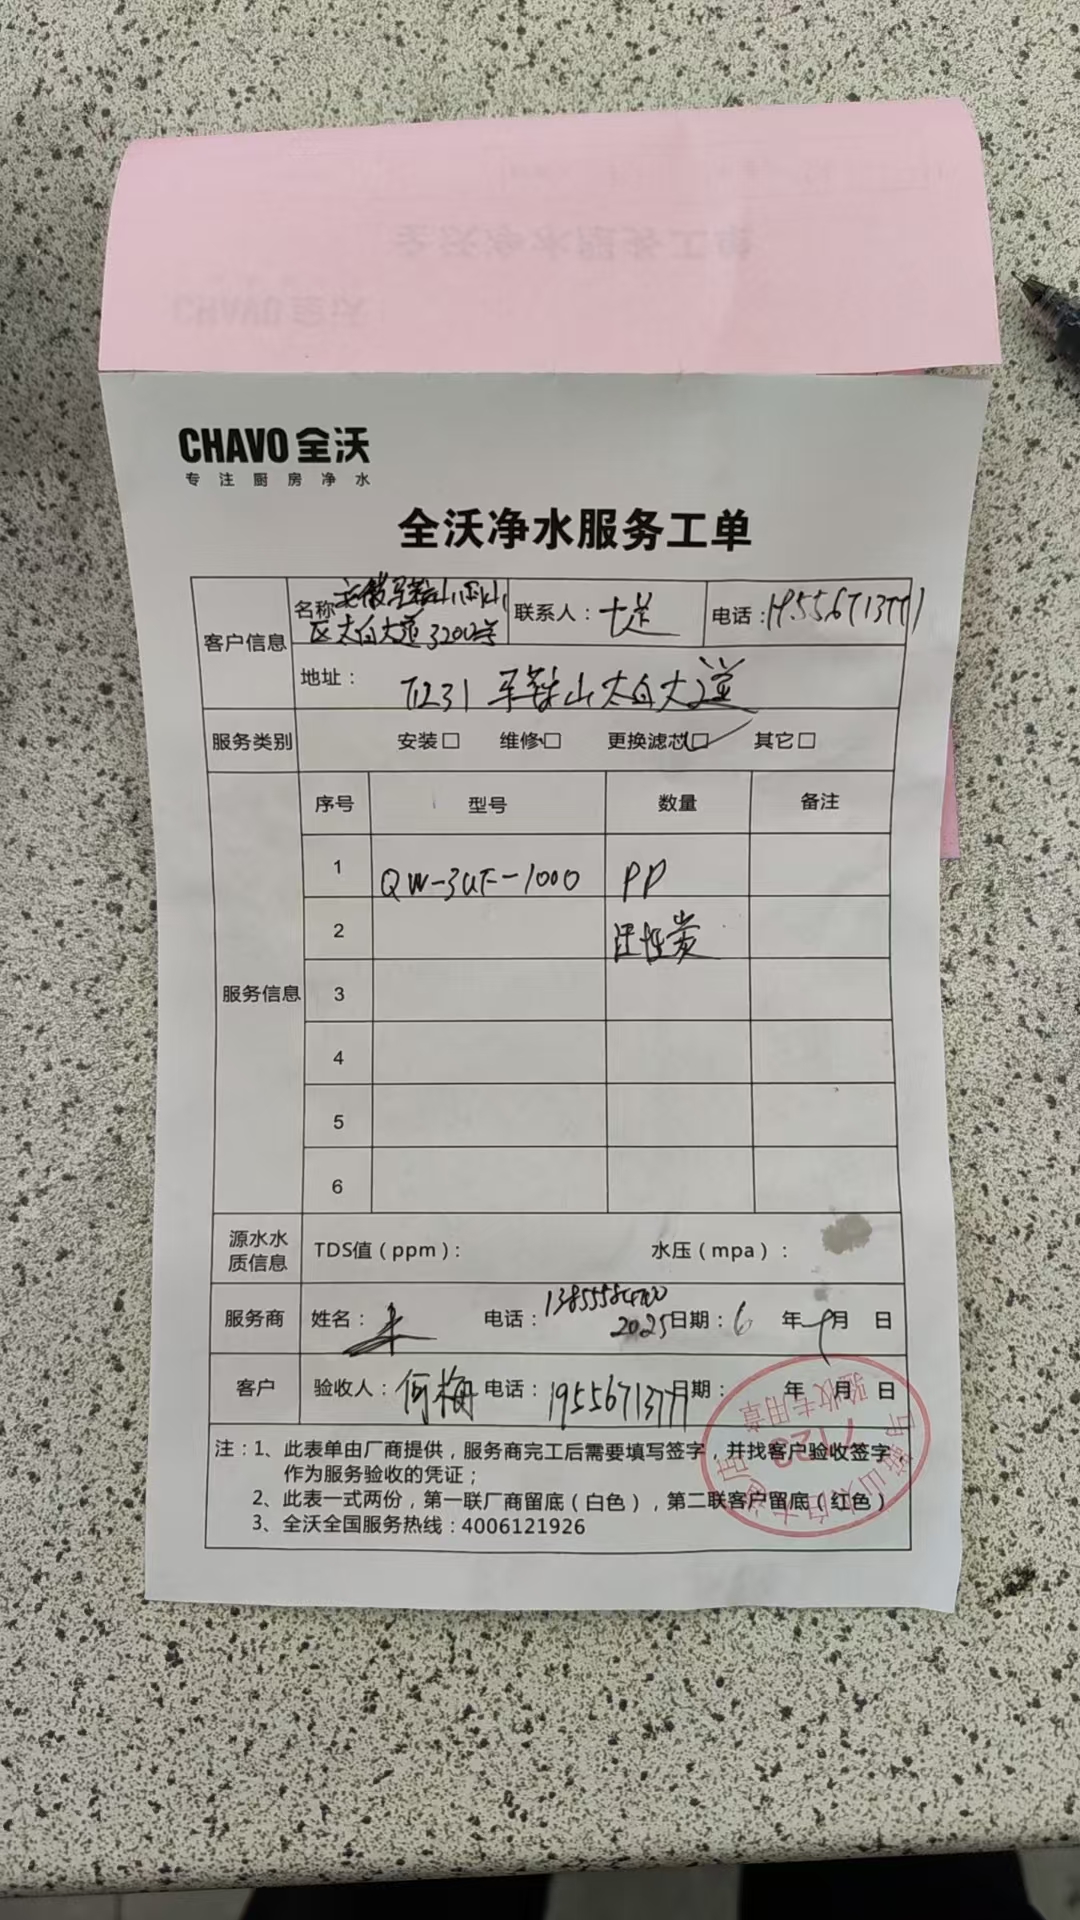 CHAVO 全沃
专注厨房净水
全沃净水服务工单
客户信息
名称 安徽马鞍山雨山
区太白大道3200号
联系人：
电话：19556713771
地址： 马鞍山太白大道
服务类别 安装□ 维修□ 更换滤芯□ 其它□
服务信息
序号 型号 数量 备注
1 QW-3UF-1000 PP
2 活性炭
3
4
5
6
源水水
质信息
TDS值（ppm）： 水压（mpa）：
服务商 姓名： 电话： 2025日期：6 年 9月 日
客户 验收人：何梅 电话：19556713771 日期： 年 月 日
注：1、此表单由厂商提供，服务商完工后需要填写签字，并找客户验收签字
作为服务验收的凭证；
2、此表一式两份，第一联厂商留底（白色），第二联客户留底（红色）
3、全沃全国服务热线：4006121926
马鞍山太白大道店
7123
验收专用章